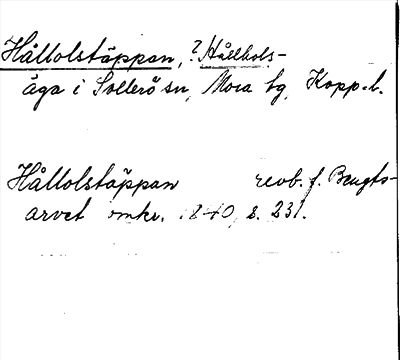 Hållolstäppan, ? Hållhols-
äga i Sollerö sn, Mora tg, Kopp.l.
Hållolstäppan revb. f. Bengts-
arvet omkr. 1840, s. 231.